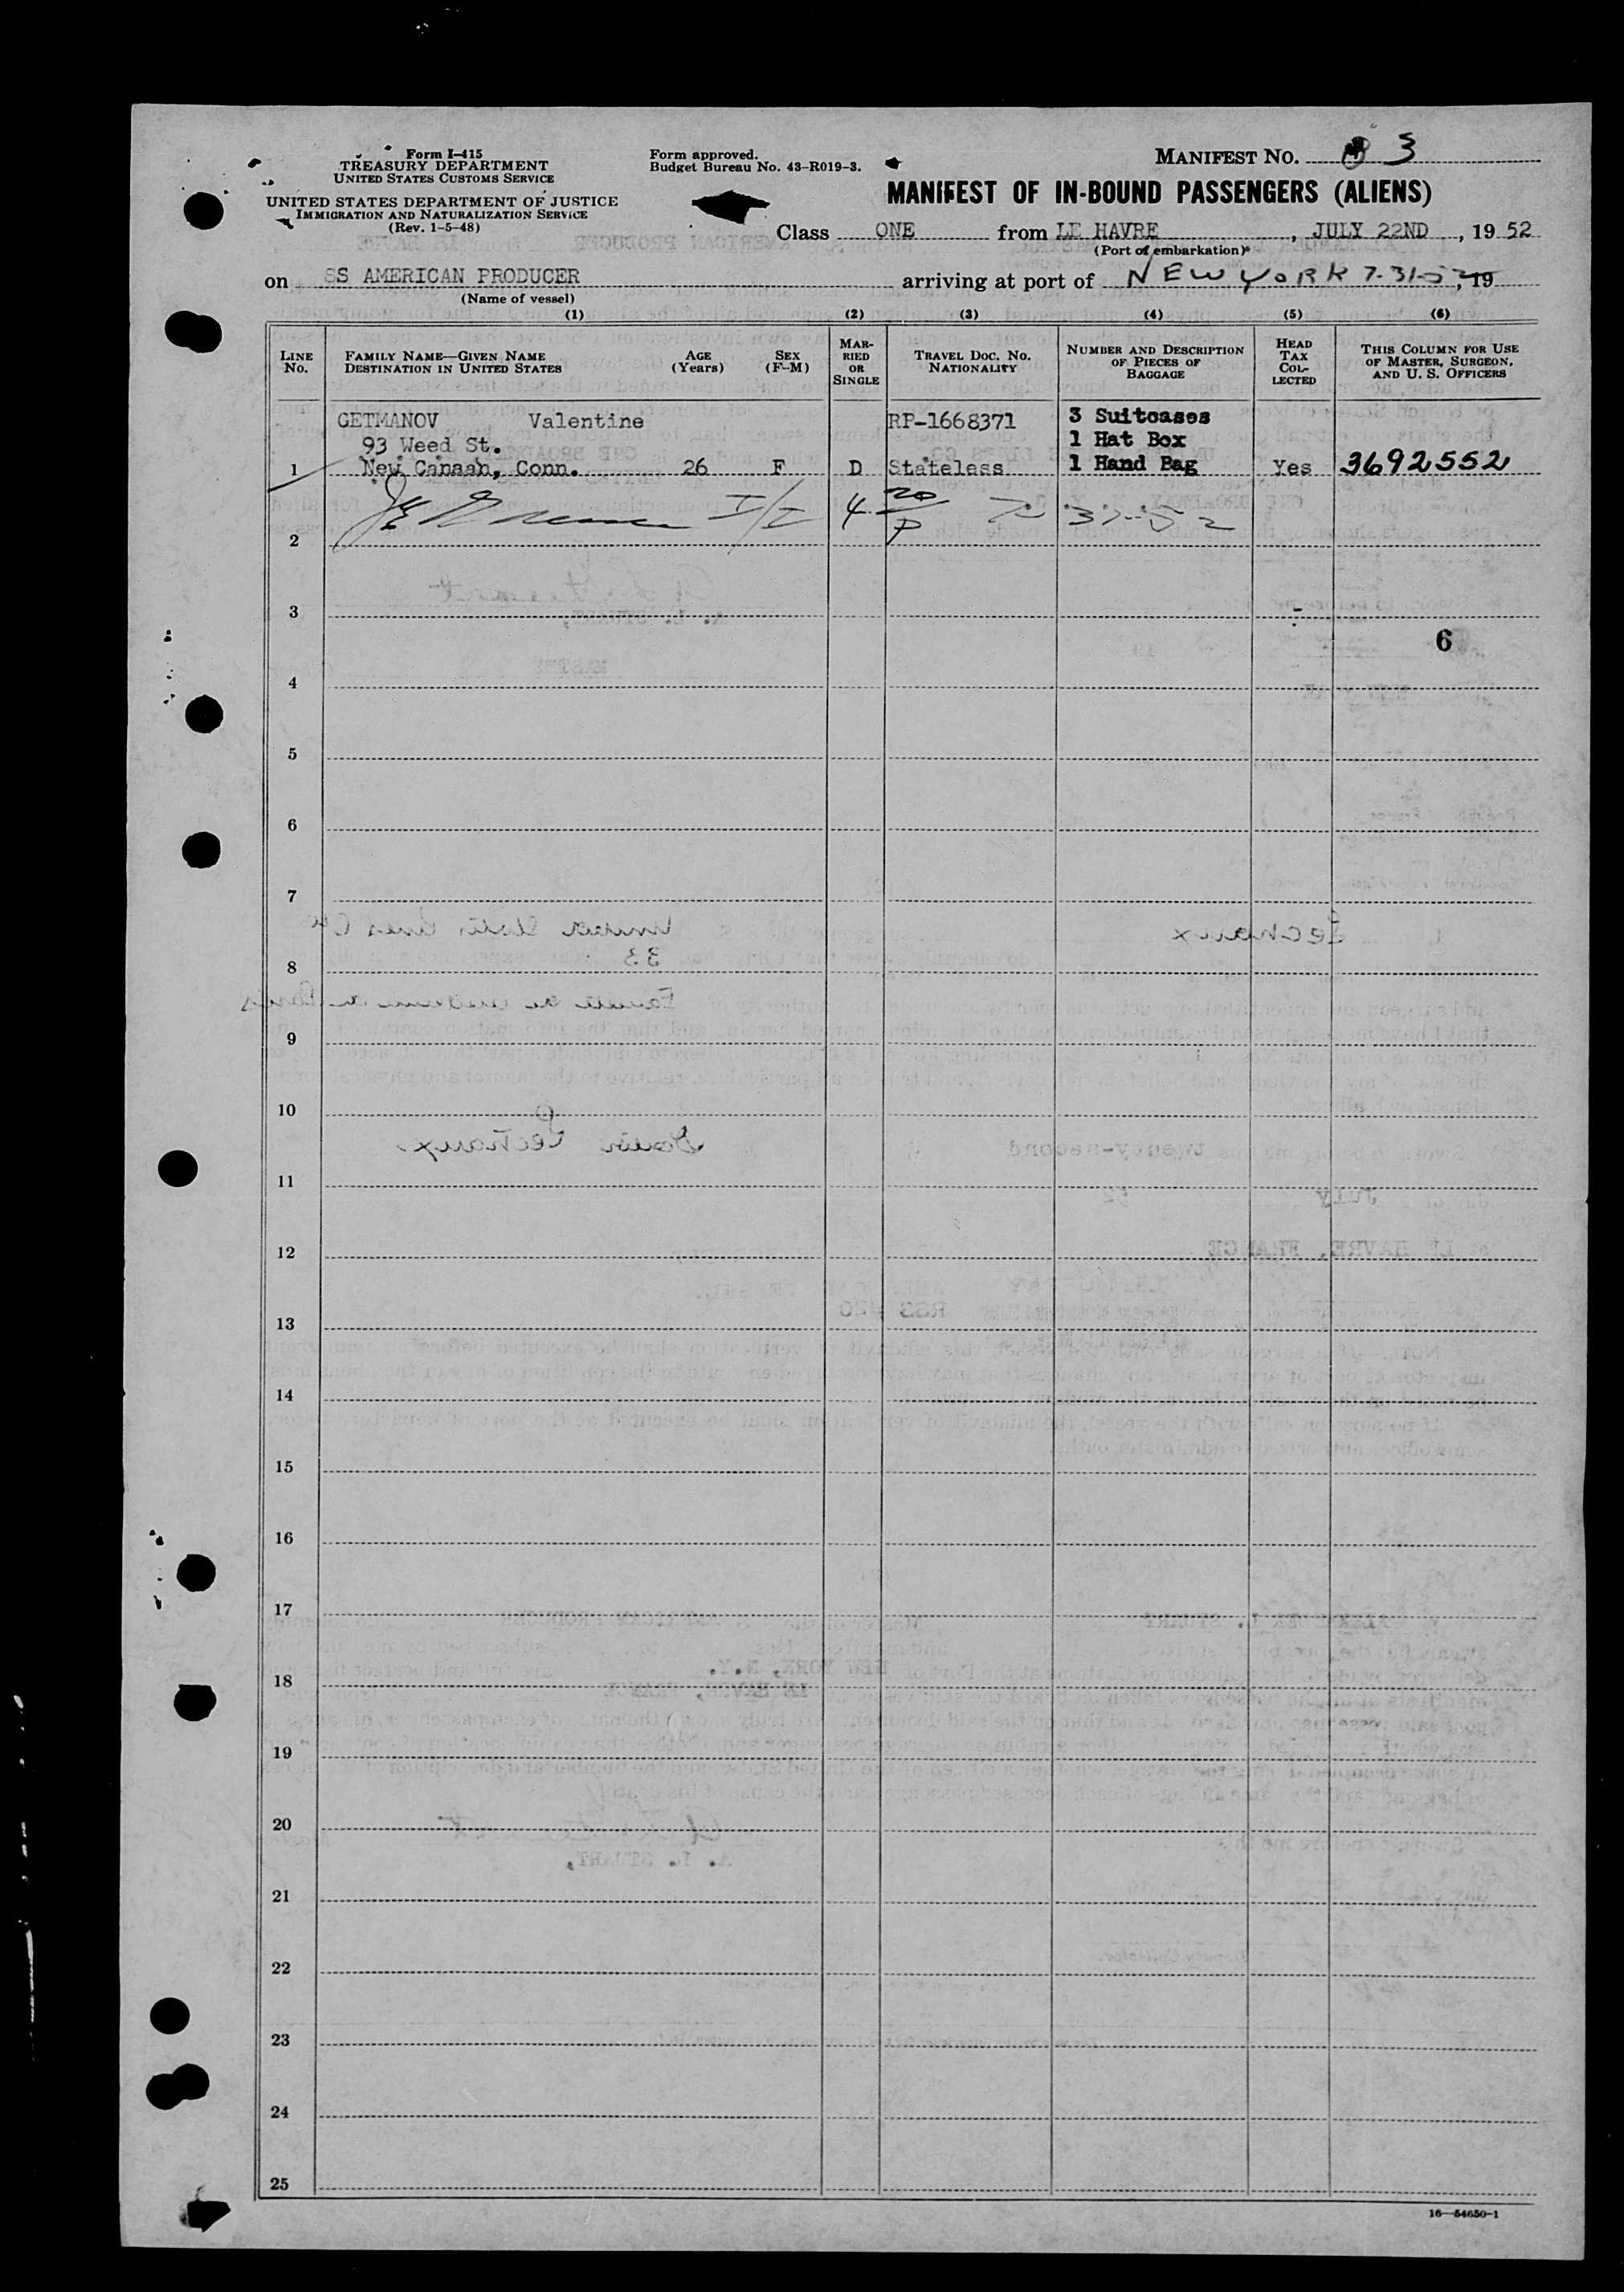 Form I-415
TREASURY DEPARTMENT
UNITED STATES CUSTOMS SERVICE
UNITED STATES DEPARTMENT OF JUSTICE
IMMIGRATION AND NATURALIZATION SERVICE
(Rev. 1-5-48)
Form approved.
Budget Bureau No. 43-R019-3.
MANIFEST NO. 3
MANIFEST OF IN-BOUND PASSENGERS (ALIENS)
Class ONE from LE HAVRE, JULY 22ND, 1952
(Port of embarkation)
on SS AMERICAN PRODUCER arriving at port of NEW YORK 7-31-52, 19
(Name of vessel)
(1) (2) (3) (4) (5) (6)
LINE No. FAMILY NAME—GIVEN NAME DESTINATION IN UNITED STATES AGE (Years) SEX (F-M) MARRIED OR SINGLE TRAVEL DOC. NO. NATIONALITY NUMBER AND DESCRIPTION OF PIECES OF BAGGAGE HEAD TAX COLLECTED THIS COLUMN FOR USE OF MASTER, SURGEON, AND U. S. OFFICERS
GETMANOV Valentine RP-1668371 3 Suitcases
93 Weed St. 1 Hat Box
1 New Canaan, Conn. 26 F D Stateless 1 Hand Bag Yes 3692552
I/I 4 20/P 7 31-52
2
3
6
4
5
6
7
8
9
10
11
12
13
14
15
16
17
18
19
20
21
22
23
24
25
16—54650-1